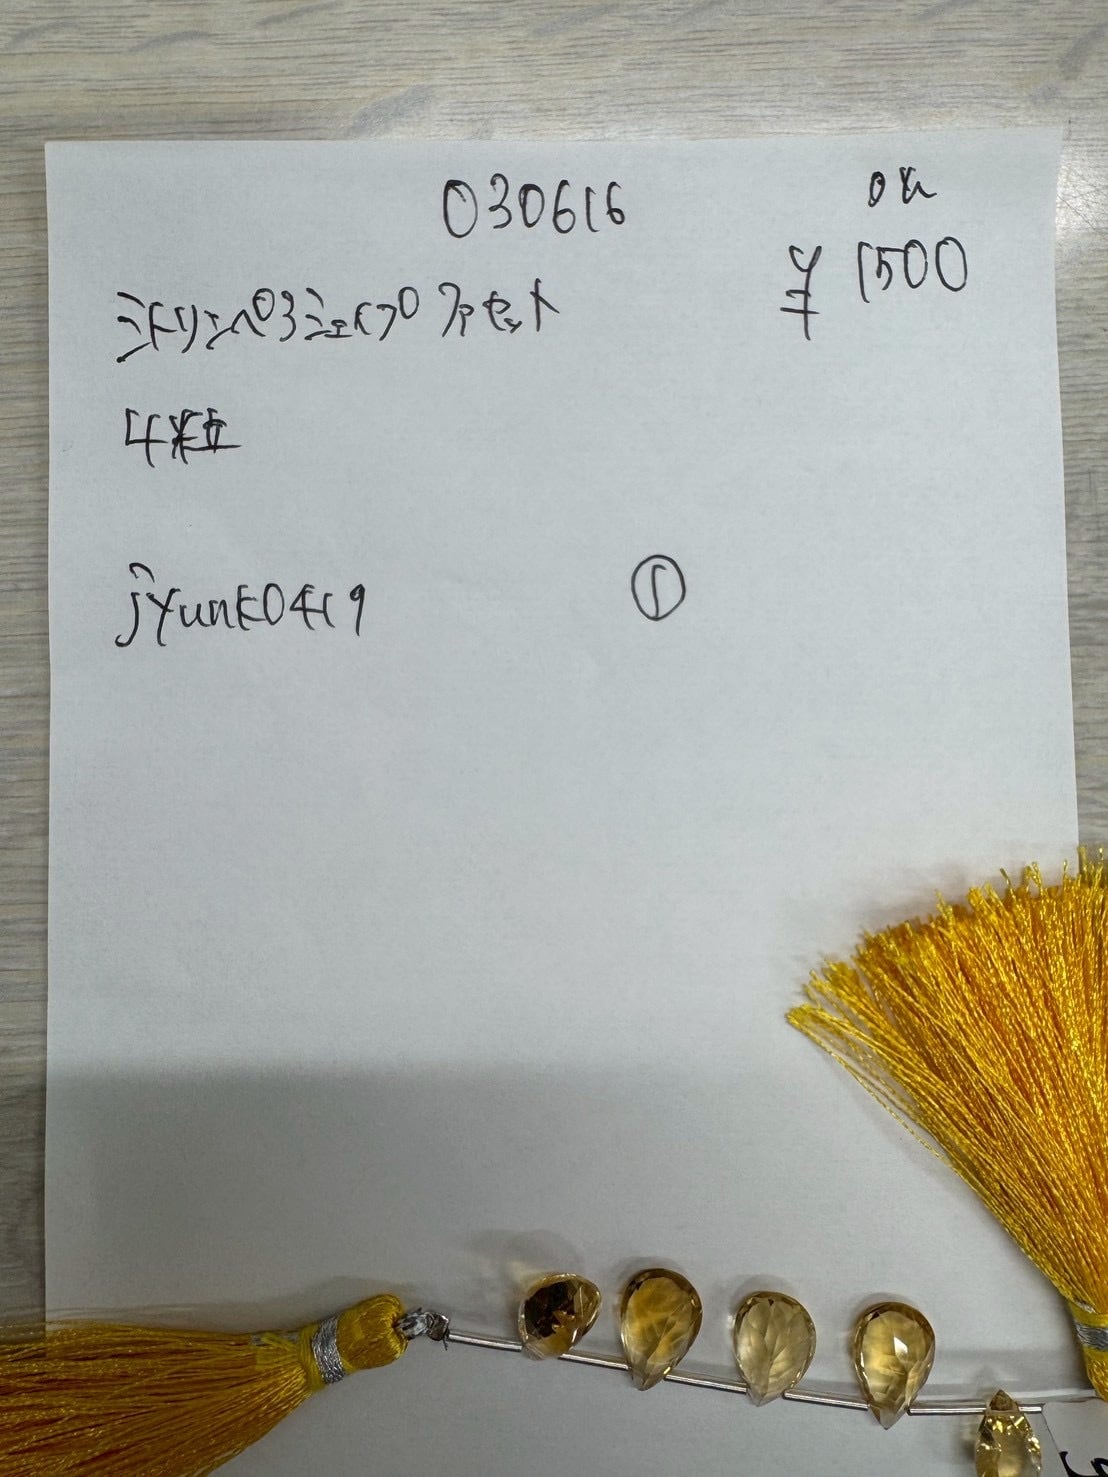 030616
OK
¥1500
シトリンペアシェイプ ファセット
4粒
jyunk0419
①